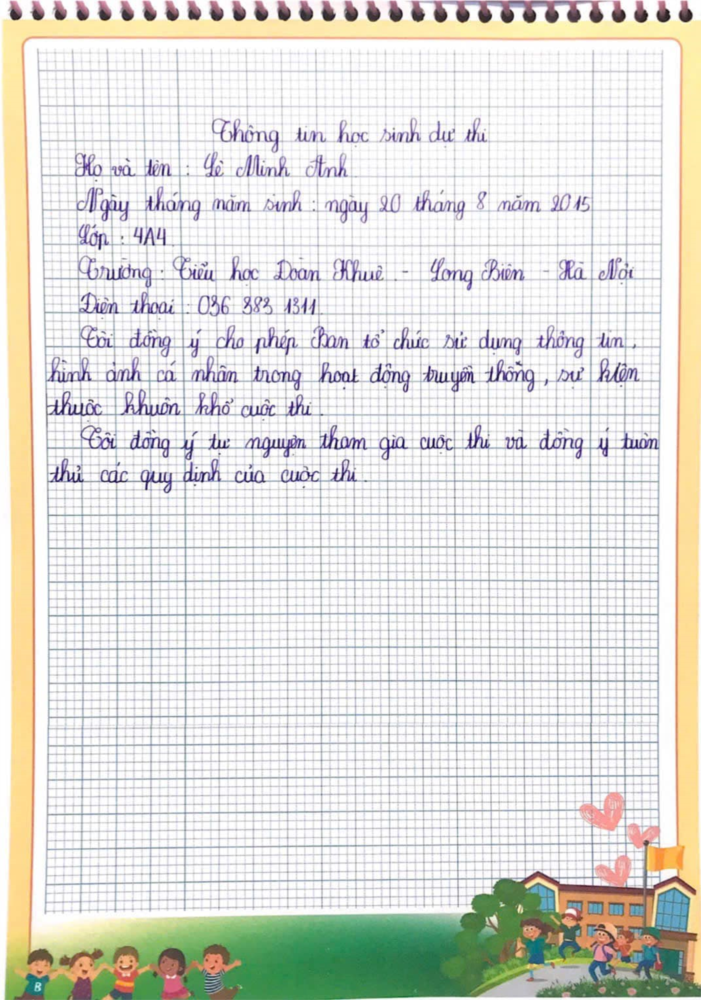 Thông tin học sinh dự thi
Họ và tên : Lê Minh Anh
Ngày tháng năm sinh : ngày 20 tháng 8 năm 2015
Lớp : 4A4
Trường : Tiểu học Đoàn Khuê - Long Biên - Hà Nội
Điện thoại : 036 383 1311
Tôi đồng ý cho phép Ban tổ chức sử dụng thông tin,
hình ảnh cá nhân trong hoạt động truyền thông, sự kiện
thuộc khuôn khổ cuộc thi.
Tôi đồng ý tự nguyện tham gia cuộc thi và đồng ý tuân
thủ các quy định của cuộc thi.
B